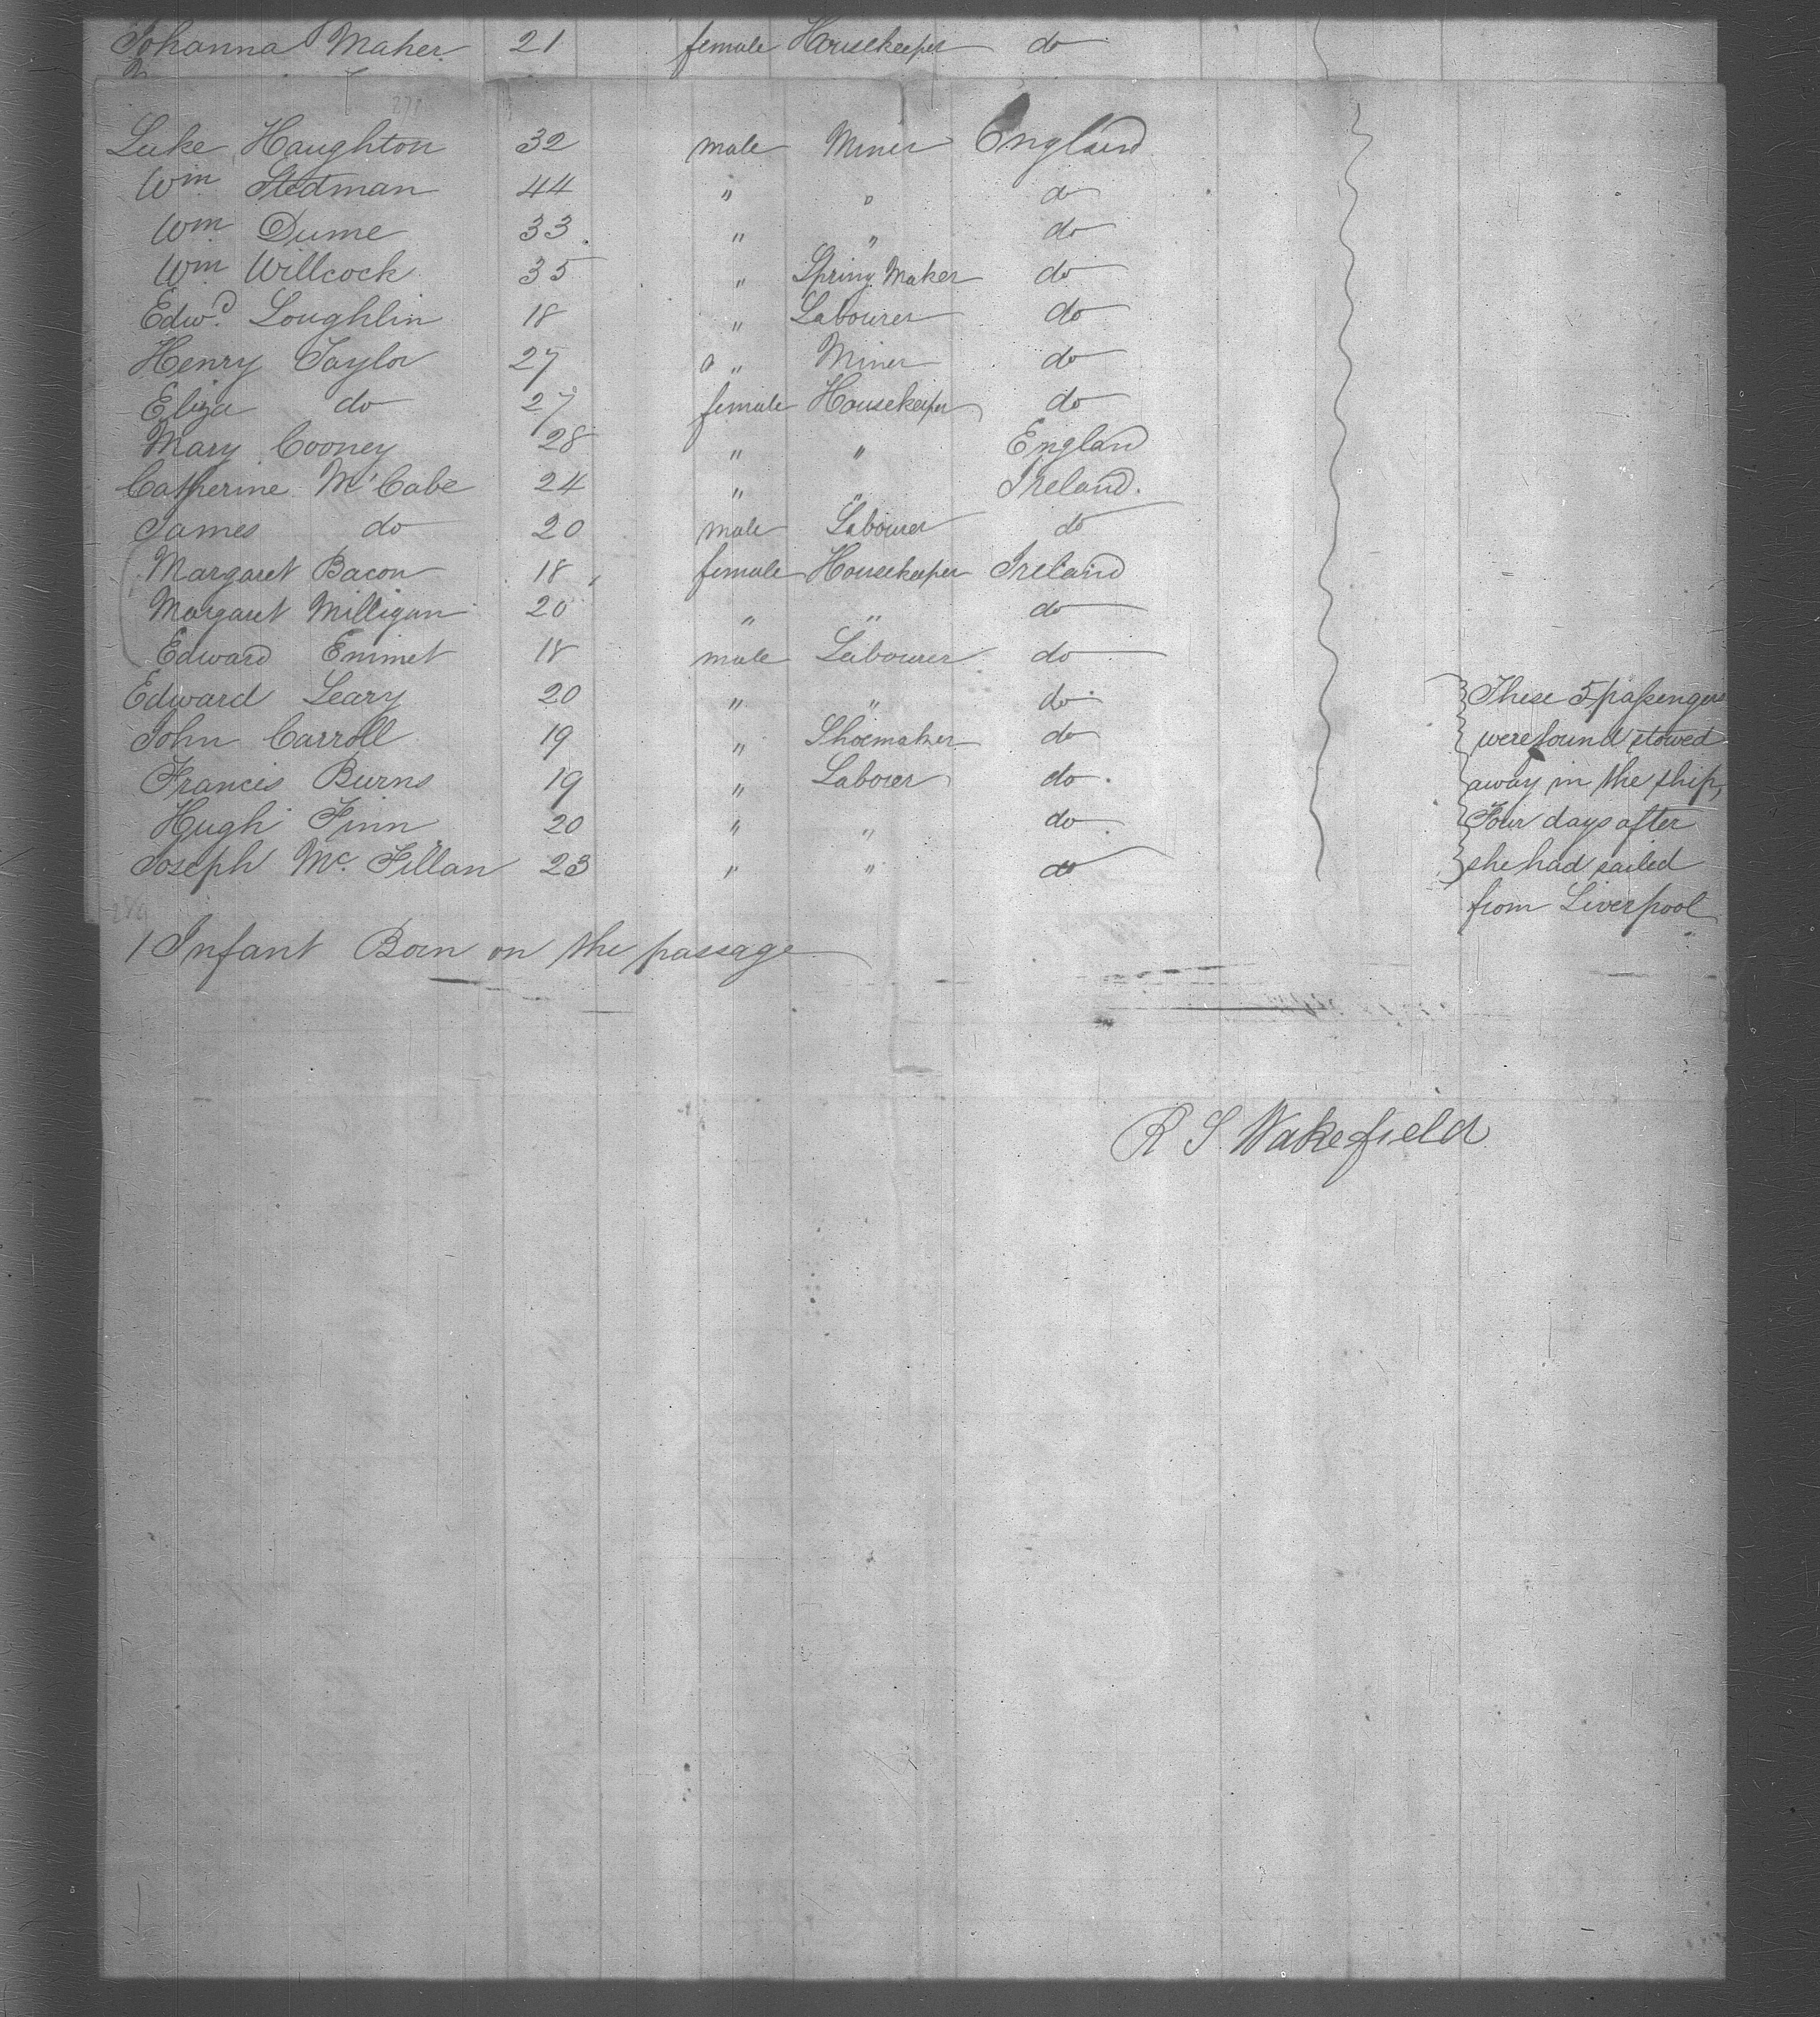 Johanna Maher 21 female Housekeeper do
Luke Haughton 32 male Miner England
Wm Stedman 44 " " do
Wm Dume 33 " " do
Wm Willcock 35 " Spring Maker do
Edwd. Loughlin 18 " Labourer do
Henry Taylor 27 " Miner do
Eliza do 27 female Housekeeper do
Mary Cooney 28 " " England
Catherine McCabe 24 " " Ireland.
James do 20 male Labourer do
Margaret Bacon 18 female Housekeeper Ireland
Margaret Milligan 20 " " do
Edward Emmet 18 male Labourer do
Edward Leary 20 " " do
John Carroll 19 " Shoemaker do
Francis Burns 19 " Laborer do
Hugh Finn 20 " " do
Joseph Mc. Fillan 23 " " do
These 5 passengers
were found stowed
away in the ship,
Four days after
she had sailed
from Liverpool
1 Infant Born on the passage
R S. Wakefield